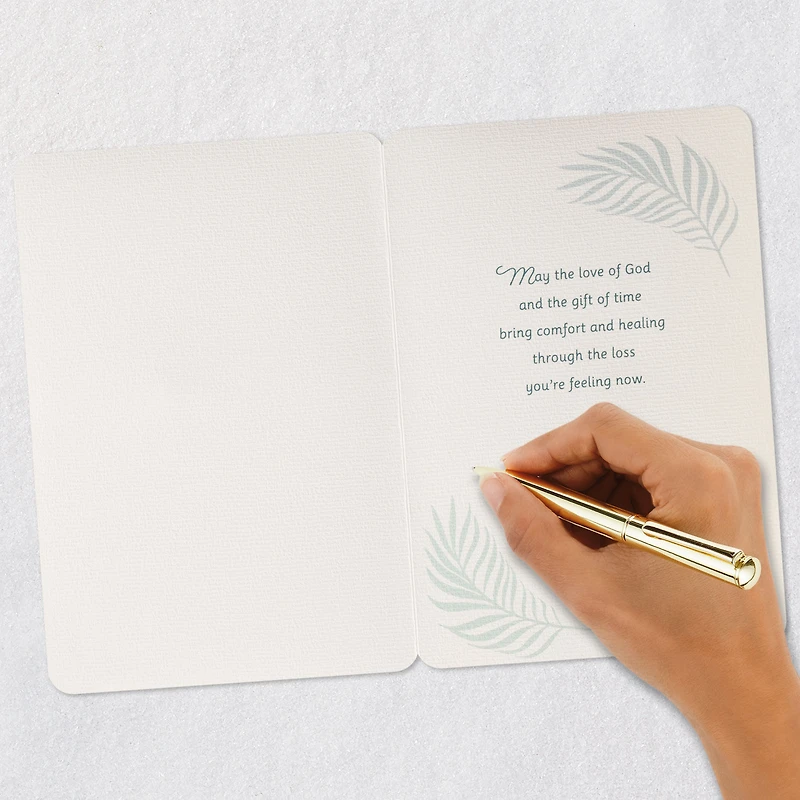 May the love of God
and the gift of time
bring comfort and healing
through the loss
you're feeling now.